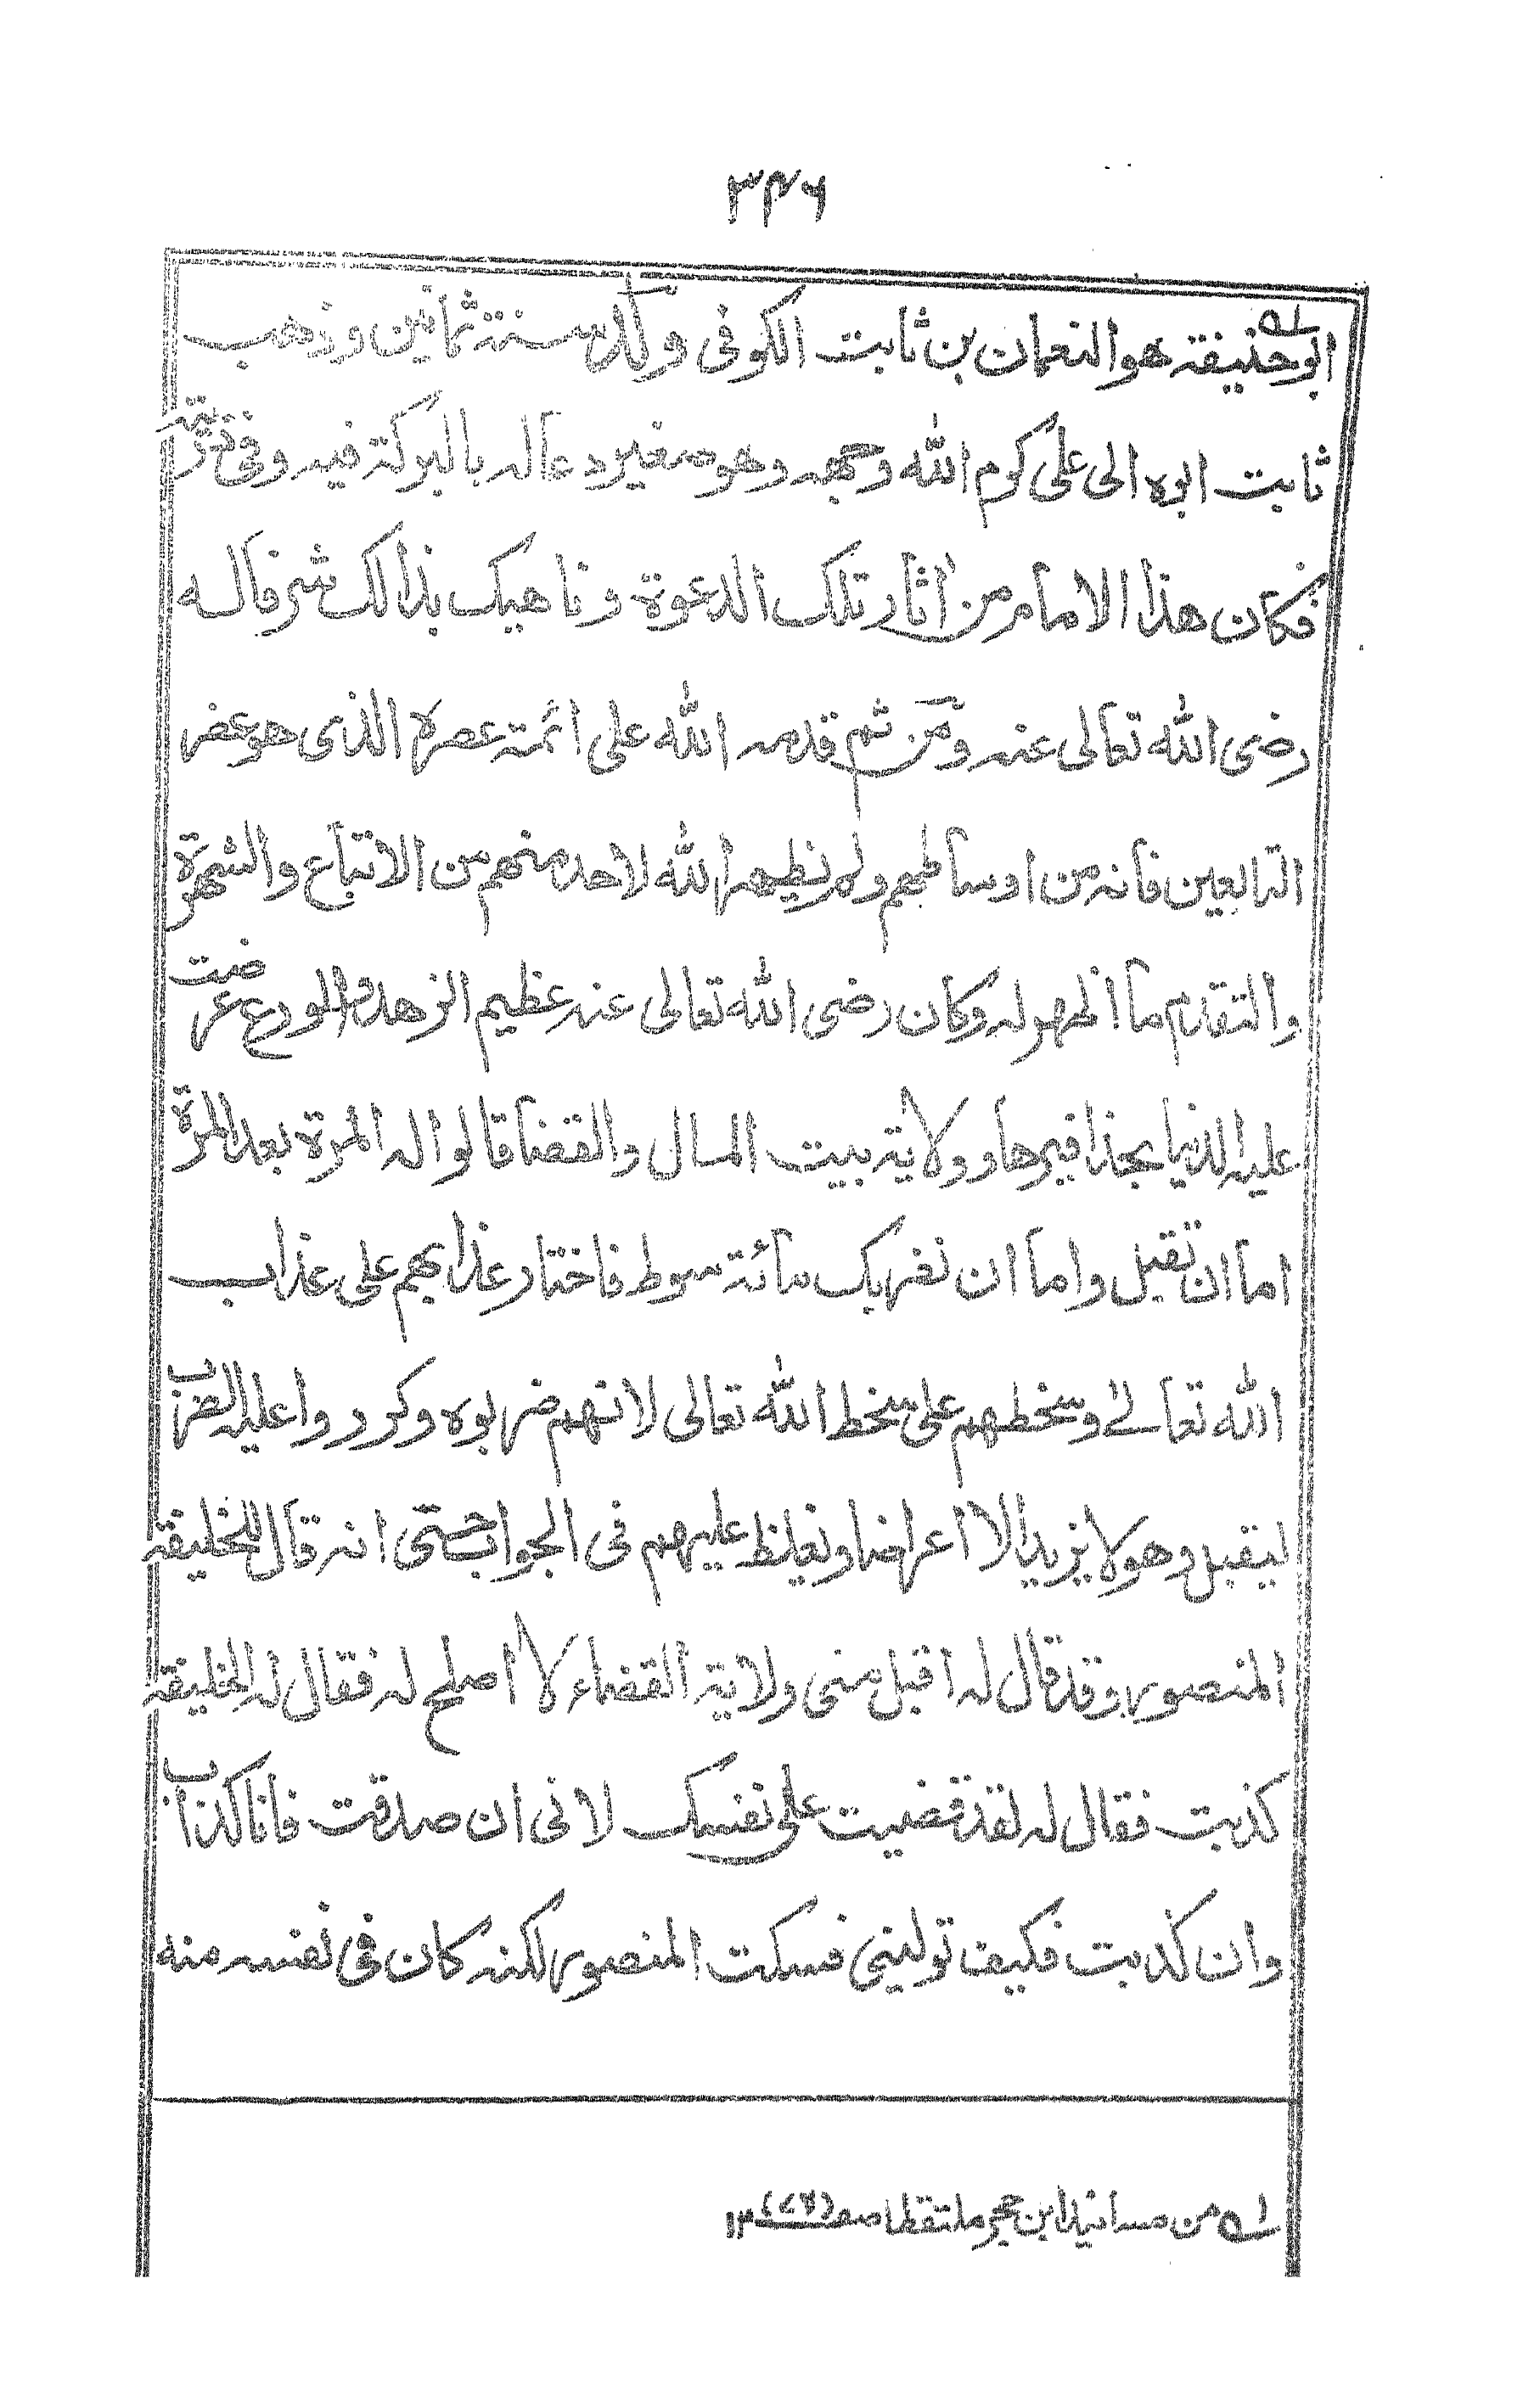 ۳۴۶
ابو حنیفۃ ؎۱ هو النعمان بن ثابت الکوفی ولد سنۃ ثمانین وذهب
ثابت ابوه الی علی کرم الله وجهه وهو صغیر دعا له بالبرکۃ فیه وفی ذریته
فکان هذا الامام من اثار تلک الدعوة وناهیک بذالک شرفا له
رضی الله تعالی عنه ومن ثم قدمه الله علی ائمۃ عصره الذی هو عصر
التابعین فانه من اوساطهم ولم یظهر الله لاحد منهم من الاتباع والشهرة
والتقدم ما اظهر له وکان رضی الله تعالی عنه عظیم الزهد والورع عرضت
علیه الدنیا بحذافیرها وولایة بیت المال والقضا قالوا له المرة بعد المرة
اما ان تقبل واما ان نضربک مائة سوط فاختار عذابهم علی عذاب
الله تعالےٰ وسخطهم علی سخط الله تعالی لانهم ضربوه وکرروا علیه الضرب
لیقبل وهو لا یزید الا اعراضا وتغلیظ علیهم فی الجواب حتی انه قال للخلیفۃ
المنصور وقد قال له اقبل منی ولایۃ القضاء لا اصلح له فقال له الخلیفۃ
کذبت فقال له لقد قضیت علی نفسک لانی ان صدقت فانا کذاب
وان کذبت فکیف تولینی فسکت المنصور لکنه کان فی نفسه منه
؎۱ من مسانید ابن حجر ملتقطا صـ ۱۲